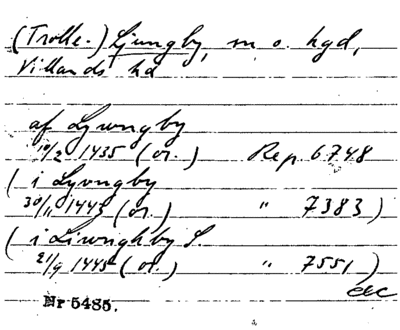 (Trolle-) Ljungby, sn o. hgd,
Villands hd
af Ljwngby
10/2 1435 (or.) Rep. 6748
(i Lywngby
30/11 1443 (or.) " 7383)
(i Liwnghby S.
21/9 1445 (or.) " 7551)
äc
Nr 5485.